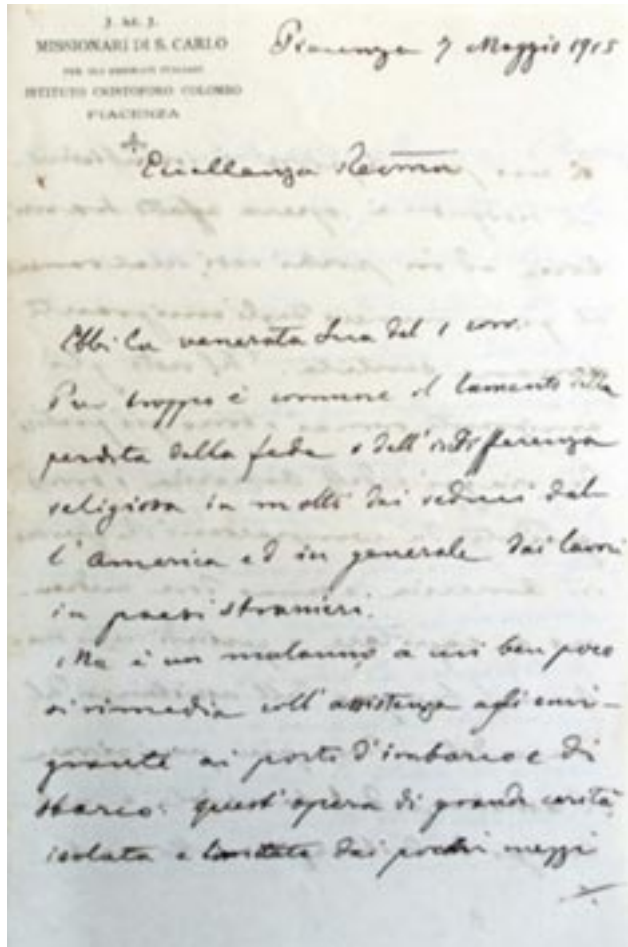 J. M. J.
MISSIONARI DI S. CARLO
PER GLI EMIGRATI ITALIANI
ISTITUTO CRISTOFORO COLOMBO
PIACENZA
Piacenza 7 Maggio 1915
Eccellenza Rev̅ma
Ebbi la venerata Sua del 1 corr.
Pur troppo è comune il lamento della
perdita della fede e dell'indifferenza
religiosa in molti dei reduci dal-
l'America ed in generale dai lavori
in paesi stranieri.
Ma è un malanno a cui ben poco
si rimedia coll'assistenza agli emi-
granti ai porti d'imbarco e di
sbarco: quest'opera di grande carità
isolata e limitata dai pochi mezzi